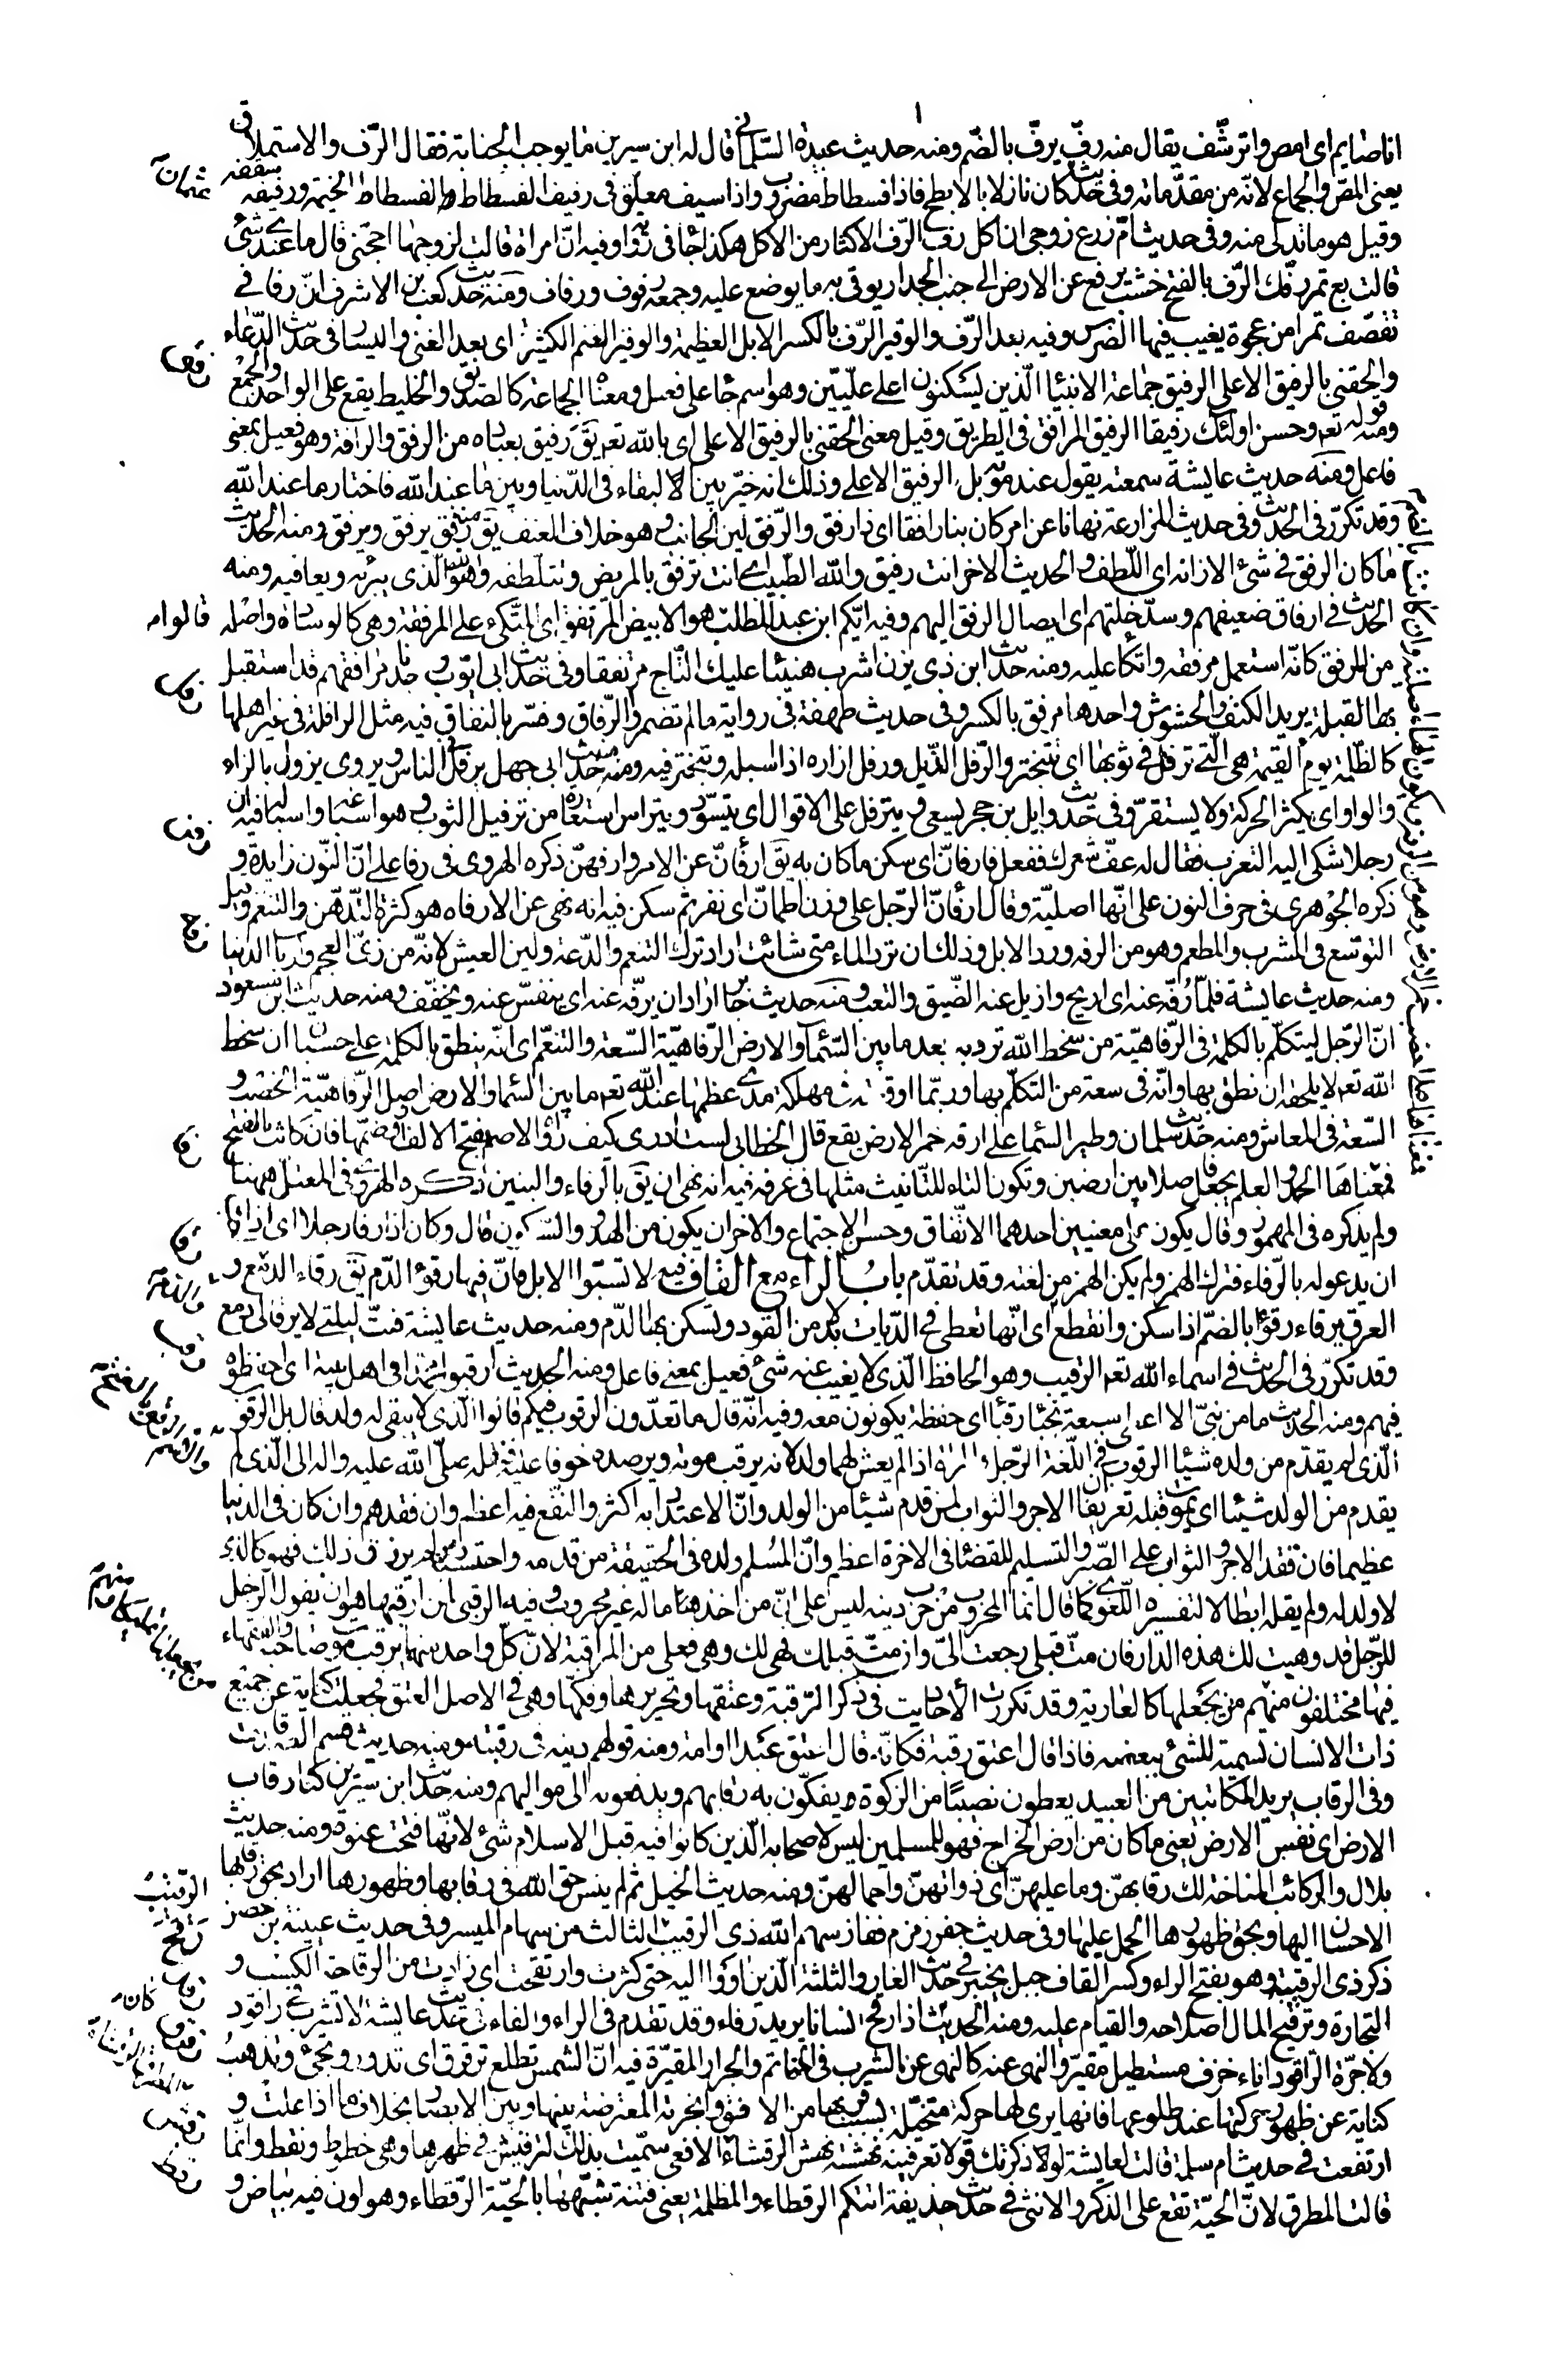 انا صايم اى امص واترشّف يقال منه رفّ يرفّ بالضّم ومنه حديث عبيدة السّلمانى قال له ابن سيرين ما يوجب الجنابة فقال الرّف والاستملاق
يعنى المصّ والجماع لانّه من مقدّماته وفى حديث كان نازلا بالابطح فاذا فسطاط مضروب واذا سيف معلّق فى رفيف الفسطاط والفسطاط الخيمة ورفيفه سقفه
وقيل هو ما تدلى منه وفى حديث امّ زرع زوجى ان اكل رفّ الرّف الاكثار من الاكل هكذا جا فى رواية وفيه انّ امراة قالت لزوجها احجّنى قال ما عندى شئ
قالت بع تمر رفّك الرّف بالفتح خشب يرفع عن الارض الى جنب الجدار يوقى به ما يوضع عليه وجمعه رفوف ورفاف ومنه حديث كعب بن الاشرف انّ رفافى
تقصّف تمرا من عجوة يغيب فيها الضرس وفيه بعد الرّف والوقير الرّف بالكسر الابل العظيمة والوقير الغنم الكثيرة اى بعد الغنى واليسار فى حديث الدّعاء
والحقنى بالرفيق الاعلى الرفيق جماعة الانبيا الّذين يسكنون اعلى علّيين وهو اسم جا على فعيل ومعناه الجماعة كالصديق والخليط يقع على الواحد والجمع
ومنه قوله تعم وحسن اولئك رفيقا الرفيق المرافق فى الطريق وقيل معنى الحقنى بالرفيق الاعلى اى بالله تعم يق رفيق بعباده من الرفق والرافة وهو فعيل بمعنى
فاعل ومنه حديث عايشة سمعته يقول عند موته بل الرفيق الاعلى وذلك انه خيّر بين البقاء فى الدّنيا وبين ما عند الله فاختار ما عند الله
وقد تكرّر فى الحديث وفى حديث المزارعة نهانا عن امر كان بنا رافقا اى ذا رفق والرّفق لين الجانب وهو خلاف العنف يق منه رفق يرفق ويرفق ومنه الحديث
ما كان الرفق فى شئ الا زانه اى اللّطف والحديث الاخر انت رفيق والله الطّبيب اى انت ترفق بالمريض وتتلطفه والله الّذى يبرئه ويعافيه ومنه
الحديث فى ارفاق ضعيفهم وسدّ خلّتهم اى ايصال الرفق اليهم وفيه ايّكم ابن عبد المطلب قالوا هو الابيض المرتفق اى المتّكئ على المرفقة وهى كالوسادة واصله
من المرفق كانّه استعمل مرفقه واتّكا عليه ومنه حديث ابن ذى يزن اشرب هنيئا عليك التّاج مرتفقا وفى حديث ابى ايّوب وجدنا مرافقهم قد استقبل
بها القبلة يريد الكنف والحشوش واحدها مرفق بالكسر وفى حديث طهفة فى رواية ما لم تضمر الرّفاق وفسّر بالنفاق فيه مثل الرافلة فى غير اهلها
كالظّلمة يوم القيمة هى الّتى ترفل فى ثوبها اى تتبختر والرّفل الذّيل ورفل ازاره اذا اسبله وتبختر فيه ومنه حديث ابى جهل يرفل فى الناس ويروى يزول بالزاء
والواو اى يكثر الحركة ولا يستقرّ وفى حديث وايل بن حجر يسعى ويترفل على الاقوال اى يتسوّد ويتراس استعارة من ترفيل الثوب وهو اسباغه واسباله فيه ان
رجلا شكى اليه التعزب فقال له عفّ شعرك ففعل فارفانّ اى سكن ما كان به يق ارفانّ عن الامر وارفهنّ ذكره الهروى فى رفا على انّ النّون زايدة و
ذكره الجوهرى فى حرف النون على انّها اصليّة وقال ارفانّ الرّجل على وزن اطمانّ اى نفر ثم سكن فيه انه نهى عن الارفاه هو كثرة التّدهّن والتنعّم وقيل
التوسّع فى المشرب والمطعم وهو من الرفه ورد الابل وذلك ان ترد الماء متى شائت اراد ترك التنعم والدّعة ولين العيش لانّه من زىّ العجم وارباب الدنيا
ومنه حديث عايشة فلمّا رُفّه عنه اى اريح وازيل عنه الضّيق والتعب ومنه حديث جابر اراد ان يرفّه عنه اى ينفّس عنه ويخفّف ومنه حديث ابن مسعود
انّ الرّجل ليتكلّم بالكلمة فى الرّفاهيّة من سخط الله ترديه بعد ما بين السّمآ والارض الرّفاهيّة السّعة والتنعّم اى انّه ينطق بالكلمة على حسبان ان سخط
الله تعم لا يلحقه ان نطق بها وانّه فى سعة من التكلّم بها وربّما اوقعته فى مهلكة مدى عظمها عند الله تعم ما بين السّما والارض اصل الرّفاهيّة الخصب و
السّعة فى المعاش ومنه حديث سلمان وطير السّما على ارفه خمر الارض يقع قال الخطابى لست ادرى كيف رواه الاصم بفتح الالف او ضمّها فان كانت بالفتح
فمعناها الحدّ والعلم يجعل فاصلا بين ارضين وتكون التاء للتّانيث مثلها فى غرفة فيه انه نهى ان يق بالرفاء والبنين ذكره الهروى فى المعتلّ ههنا
ولم يذكره فى المهموز وقال يكون على معنيين احدهما الاتّفاق وحسن الاجتماع والاخر ان يكون من الهدوّ والسّكون قال وكان اذا رفا رجلا اى اذا اراد
ان يدعو له بالرّفاء فترك الهمز ولم يكن الهمز من لغته وقد تقدّم بابُ الراء مع القاف فيه لا تسبّوا الابل فانّ فيها رقؤ الدّم يق رقاء الدّمع و
العرق يرقاء رقوًا بالضمّ اذا سكن وانقطع اى انّها تعطى فى الدّيات بدلا من القود ويسكن بها الدّم ومنه حديث عايشة فبتّ ليلتى لا يرقا لى دمع
وقد تكرّر فى الحديث فى اسماء الله تعم الرقيب وهو الحافظ الّذى لا يغيب عنه شئ فعيل بمعنى فاعل ومنه الحديث ارقبوا محمّدا فى اهل بيته اى احفظوه
فيهم ومنه الحديث ما من نبىّ الا اعطى سبعة نجبا رقبا اى حفظة يكونون معه وفيه انّه قال ما تعدّون الرقوب فيكم قالوا الّذى لا يبقى له ولد قال بل الرقوب
الّذى لم يقدّم من ولده شيئا الرقوب فى اللّغة الرّجل والمراة اذا لم يعش لهما ولد لانه يرقب موته ويرصده خوفا عليه فنقله صلّى الله عليه واله الى الّذى لم
يقدم من الولد شيئا اى يموت قبله تعريفا ان الاجر والثواب لمن قدم شيئا من الولد وانّ الاعتداد به اكثر والنّفع فيه اعظم وان فقدهم وان كان فى الدنيا
عظيما فان فقد الاجر والثواب على الصّبر والتسليم للقضا فى الاخرة اعظم وانّ المُسلم ولده فى الحقيقة من قدمه واحتسبه ومن لم يرزق ذلك فهو كالذى
لا ولد له ولم يقله ابطالا لتفسيره اللّغوى كما قال انما المحروب من حرب دينه ليس على انّ من اخذ ماله غير محروب وفيه الرقبى لمن ارقبها هو ان يقول الرّجل
للرّجل قد وهبت لك هذه الدار فان متّ قبلى رجعت الىّ وان متّ قبلك فهى لك وهى فعلى من المراقبة لانّ كلّ واحد منهما يرقب موت صاحبه والفقهاء
فيها مختلفون منهم من يجعلها كالعارية وقد تكررت الاحاديث فى ذكر الرّقبة وعتقها وتحريرها وفكّها وهى فى الاصل العنق فجعلت كناية عن جميع
ذات الانسان تسمية للشئ ببعضه فاذا قال اعتق رقبة فكانّه قال اعتق عبدا او امة ومنه قولهم دينه فى رقبته ومنه حديث قسم الصدقات
وفى الرقاب يريد المكاتبين من العبيد يعطون نصيبًا من الزكوة ويفكّون به رقابهم ويدفعونه الى مواليهم ومنه حديث ابن سيرين لنا رقاب
الارض اى نفس الارض يعنى ما كان من ارض الخراج فهو للمسلمين ليس لاصحابه الّذين كانوا فيه قبل الاسلام شئ لانّها فتحت عنوة ومنه حديث
بلال والركائب المناخة لك رقابهنّ وما عليهنّ اى ذواتهنّ واحمالهنّ ومنه حديث الخيل ثم لم ينس حق الله فى رقابها وظهورها اراد بحق رقابها
الاحسان اليها وبحق ظهورها الحمل عليها وفى حديث حفر زمزم ففاز سهم الله ذى الرقيب الرّقيبُ الثالث من سهام الميسر وفى حديث عيينة بن حصن
ذكر ذى الرقيبة وهو بفتح الراء وكسر القاف جبل بخيبر فى حديث الغار والثلثة الّذين اووا اليه حتى كثرت وارتقحت اى زادت من الرقاحة الكسب و
التجارة وترقيح المال اصلاحه والقيام عليه ومنه الحديث كان اذا رقّح انسانا يريد رفاء وقد تقدم فى الراء والفاء فى حديث عايشة لا تشرب فى راقود
ولا جرّة الرّاقود اناء خزف مستطيل مقيّر والنهى عنه كالنهى عن الشرب فى الحناتم والجرار المقيّرة فيه انّ الشمس تطلع ترقرق اى تدور وتجئ وتذهبُ
كناية عن ظهور حركتها عند طلوعها فانها يرى لها حركة متخيّلة بسبب قربها من الافق وابخرته المعترضة بينها وبين الابصار بخلاف ما اذا علت و
ارتفعت فى حديث ام سلمة قالت لعايشة لو ذكرتك قولا تعرفينه نهشته نهش الرقشاء الافعى سمّيت بذلك لترقيش فى ظهرها وهى خطوط ونقط وانّما
قالت المطرق لانّ الحيّة تقع على الذكر والانثى فى حديث حذيفة اتتكم الرقطاء والمظلمة يعنى فتنة شبّهها بالحيّة الرّقطاء وهو لون فيه بياض و